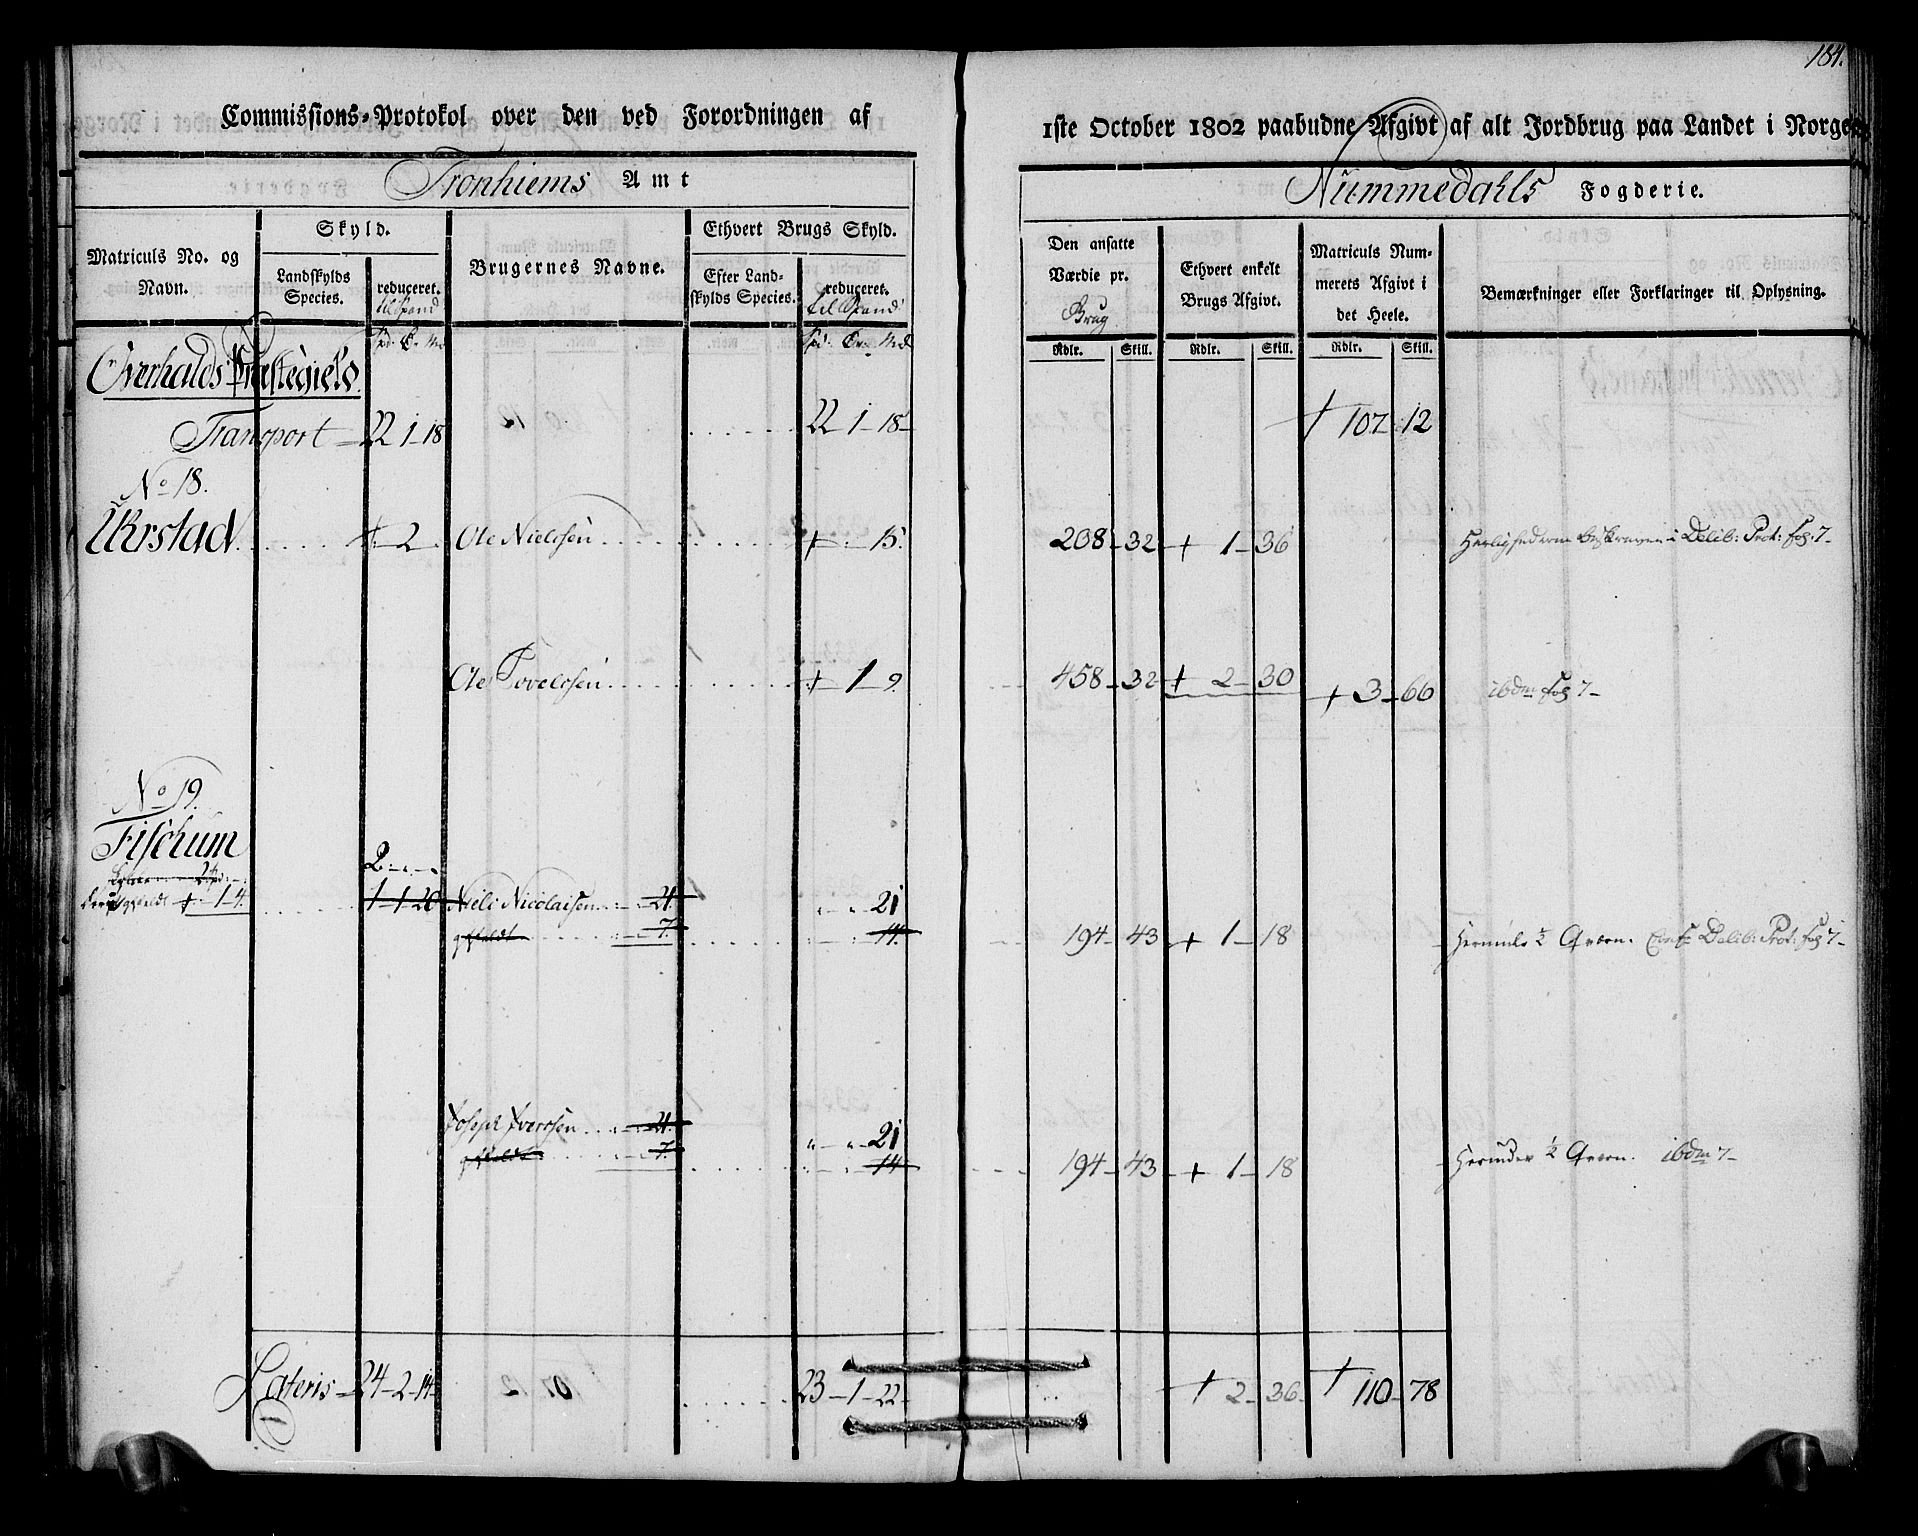 184.
Commissions-Protokol over den ved Forordningen af
1ste October 1802 paabudne Afgivt af alt Jordbrug paa Landet i Norge.
Tronhiems Amt
Nummedahls Fogderie.
Matriculs No. og Navn.
Skyld.
Landskylds Species.
reduceret. til Spand
Brugernes Navne.
Ethvert Brugs Skyld.
Efter Landskylds Species.
reduceret. til Spand
Den ansatte Værdie pr. Brug
Ethvert enkelt Brugs Afgivt.
Matriculs Nummerets Afgivt i det Heele.
Bemærkninger eller Forklaringer til Oplysning.
Rdlr. Skill. Rdlr. Skill. Rdlr. Skill.
Overhalds Præstegield.
Transport 22-1-18 22-1-18 107-12
No 18.
Ukrstad 2 Ole Nielssen 15. 208-32 1-36 Herlighederne beskreven i Delib: Prot: fol: 7
Ole Tovelssen 1-9 458-32 2-30 3-66 ibdm fol 7
No 19.
Fischum
2
1-4. 1-1-20 Niels Nicolaisen 21. 21
7. 14. 194-43 1-18 ½ Qværn. Delib: Prot: fol 7
Joseph Iverssen 21. 21
7. 14 194-43 1-18 ½ Qværn. ibdm 7
Lateris 24-2-14 23-1-22 2-36 110-78